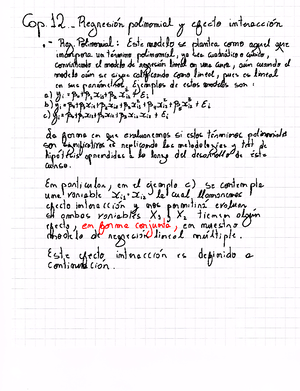 Cap. 12. Regresión polinomial y efecto interacción
- Reg. Polinomial: Este modelo se plantea como aquel que
incorpora un término polinomial, ya sea cuadrático o cúbico,
convirtiendo el modelo de regresión lineal en una curva, aún cuando el
modelo aún se sigue calificando como lineal, pues es lineal
en sus parámetros. Ejemplos de estos modelos son:
a) yi = β0+β1xi1+β2xi1²+Ei
b)
c)
La forma en que evaluaremos si estos términos polinomiales
son significativos es replicando las metodologías y test de
hipótesis aprendidas a lo largo del desarrollo de este
curso.
En particular, en el ejemplo c) se contempla
una variable la cual llamaremos
efecto interacción y nos permitirá evaluar
si ambas variables X1 y X2 tienen algún
efecto, en forma conjunta, en nuestro
modelo de regresión lineal múltiple.
Este efecto interacción es definido a
continuación.